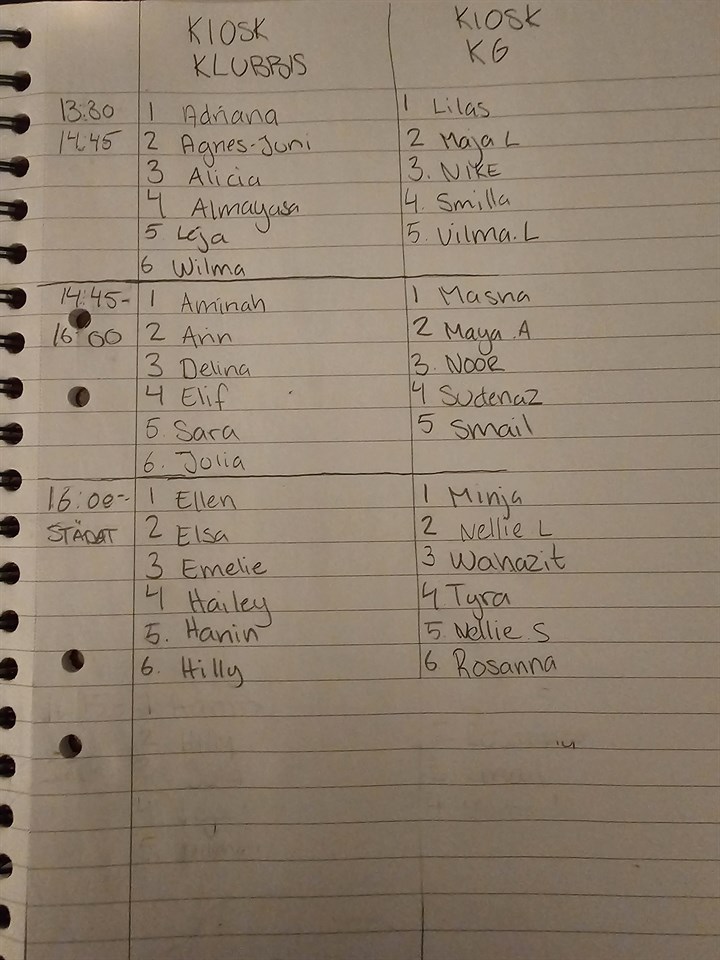 KIOSK KIOSK
KLUBBIS KG
13:30 1 Adriana 1 Lilas
14:45 2 Agnes-Juni 2 Maja L
3 Alicia 3. NIKE
4 Almayasa 4. Smilla
5 Leja 5. Vilma.L
6 Wilma
14:45- 1 Aminah 1 Masna
16:00 2 Ann 2 Maya.A
3 Delina 3. NOOR
4 Elif 4 Sudenaz
5. Sara 5 Smail
6. Julia
16:00- 1 Ellen 1 Minja
STÄDAT 2 Elsa 2 Nellie L
3 Emelie 3 Wahazit
4 Hailey 4 Tyra
5. Hanin 5. Nellie S
6. Hilly 6 Rosanna